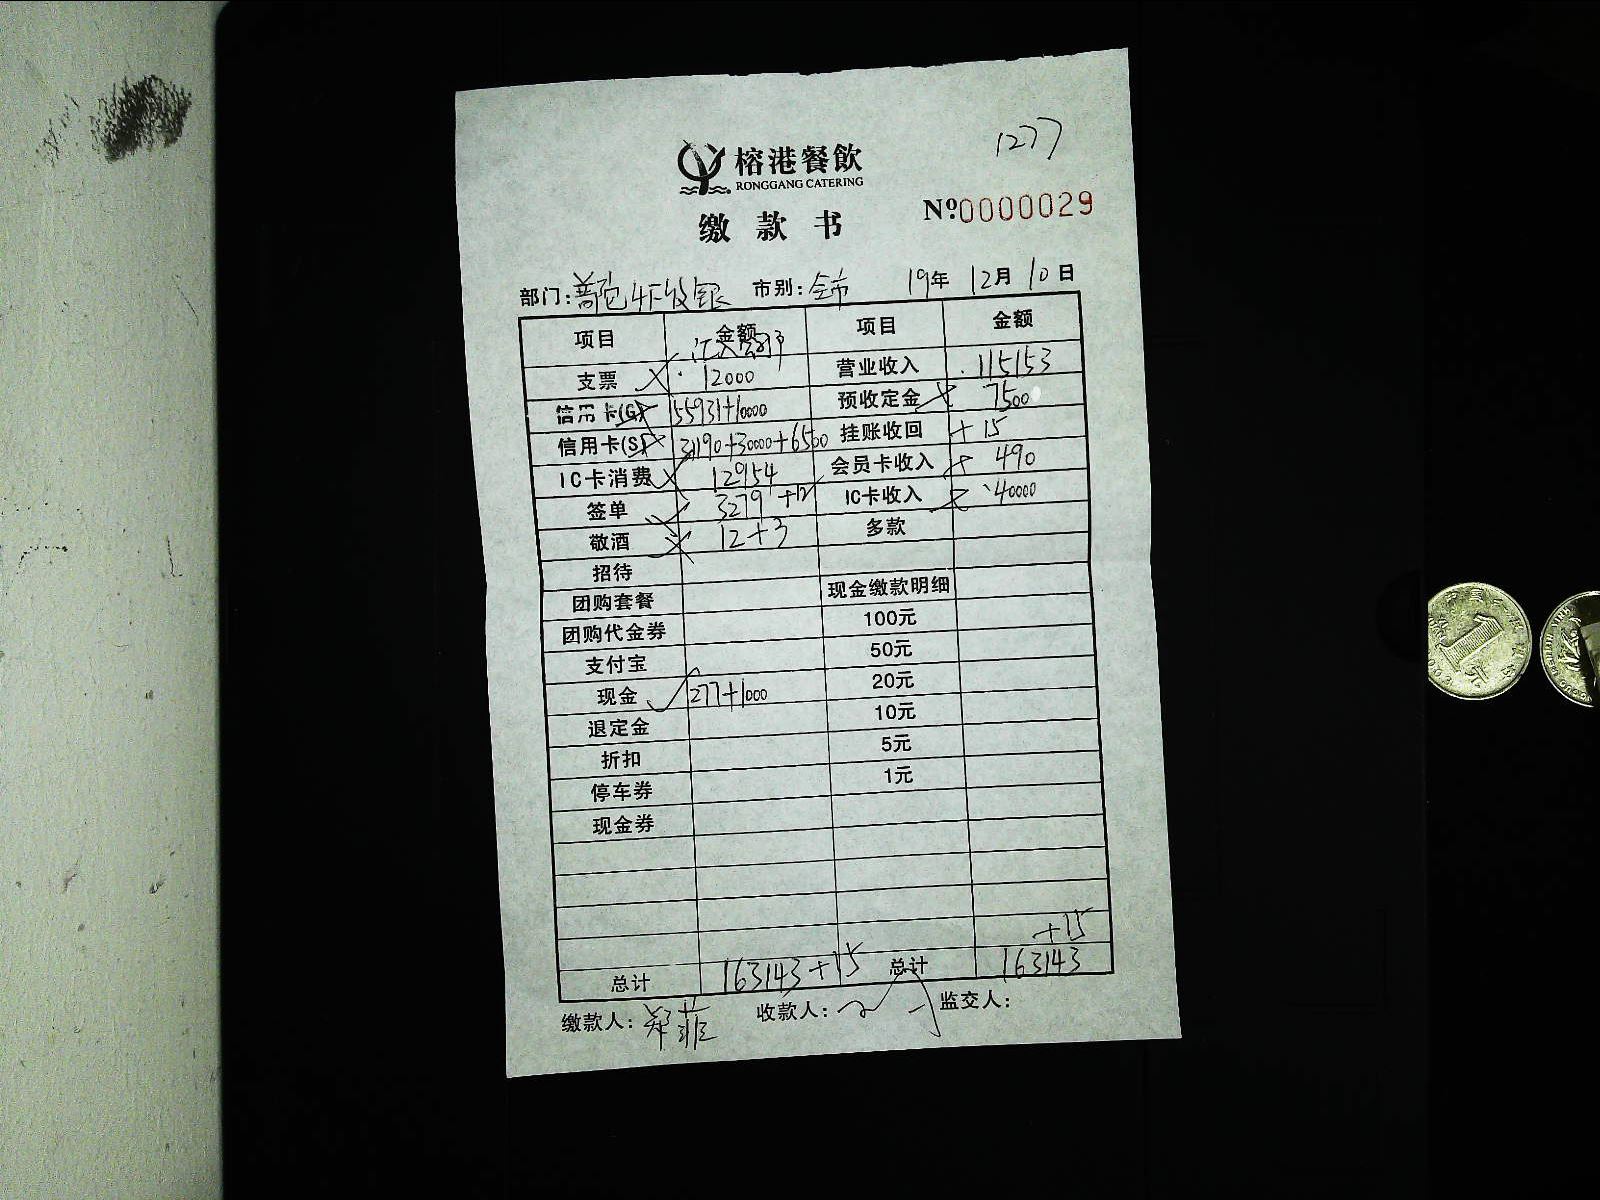 1277
榕港餐飲
RONGGANG CATERING
缴款书
Nº0000029
部门: 收银 市别: 全市 19年 12月 10日
项目 金额 项目 金额
支票 12000 营业收入 115153
信用卡(G) 55931+10000 预收定金 7500
信用卡(S) 31190+30000+6500 挂账收回 +15
IC卡消费 12954 会员卡收入 490
签单 3279 +12 IC卡收入 40000
敬酒 12+3 多款
招待
团购套餐 现金缴款明细
团购代金券 100元
支付宝 50元
现金 277+1000 20元
退定金 10元
折扣 5元
停车券 1元
现金券
+15
总计 163143+15 总计 163143
缴款人: 郑菲 收款人: 监交人: